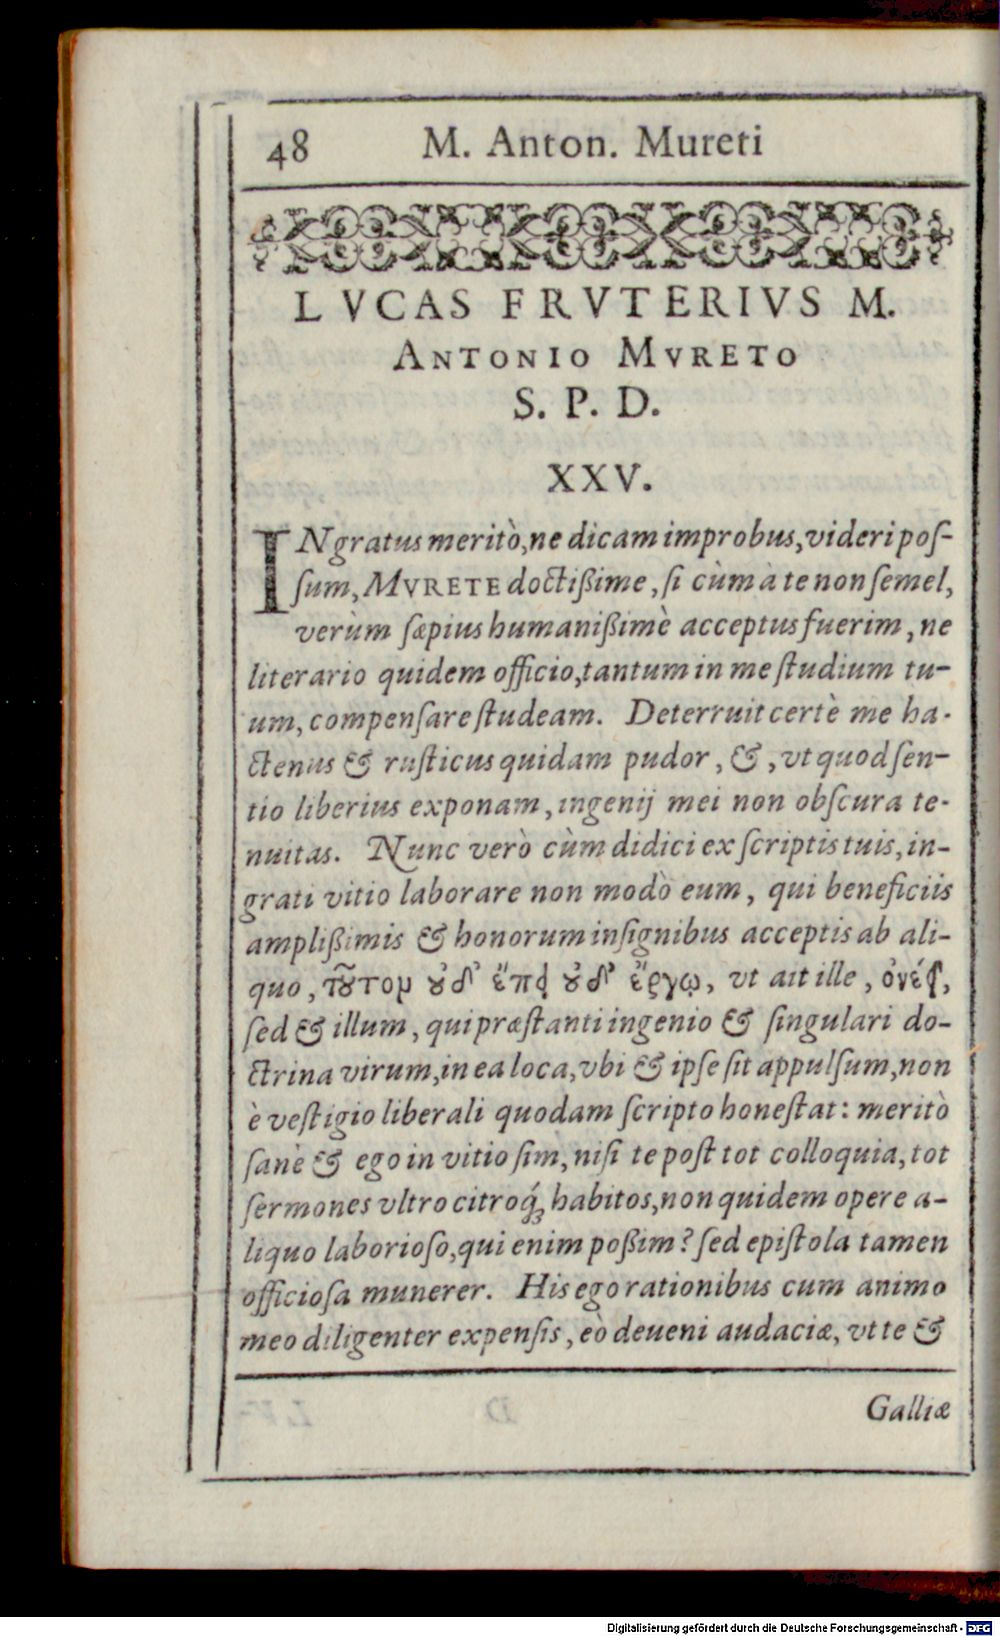 48 M. Anton. Mureti
LVCAS FRVTERIVS M.
ANTONIO MVRETO
S. P. D.
XXV.
INgratus meritò, ne dicam improbus, videri pos-
sum, MVRETE doctißime, si cùm à te non semel,
verùm sæpius humanißimè acceptus fuerim, ne
literario quidem officio, tantum in me studium tu-
um, compensare studeam. Deterruit certè me ha-
ctenus & rusticus quidam pudor, &, vt quod sen-
tio liberius exponam, ingenij mei non obscura te-
nuitas. Nunc verò cùm didici ex scriptis tuis, in-
grati vitio laborare non modò eum, qui beneficiis
amplißimis & honorum insignibus acceptis ab ali-
quo, τοῦτον οὐδ' ἔπει οὐδ' ἔργῳ, vt ait ille,
sed & illum, qui præstanti ingenio & singulari do-
ctrina virum, in ea loca, vbi & ipse sit appulsum, non
è vestigio liberali quodam scripto honestat: meritò
sanè & ego in vitio sim, nisi te post tot colloquia, tot
sermones vltro citroq́; habitos, non quidem opere a-
liquo laborioso, qui enim poßim? sed epistola tamen
officiosa munerer. His ego rationibus cum animo
meo diligenter expensis, eò deueni audaciæ, vt te &
Galliæ
Digitalisierung gefördert durch die Deutsche Forschungsgemeinschaft - DFG